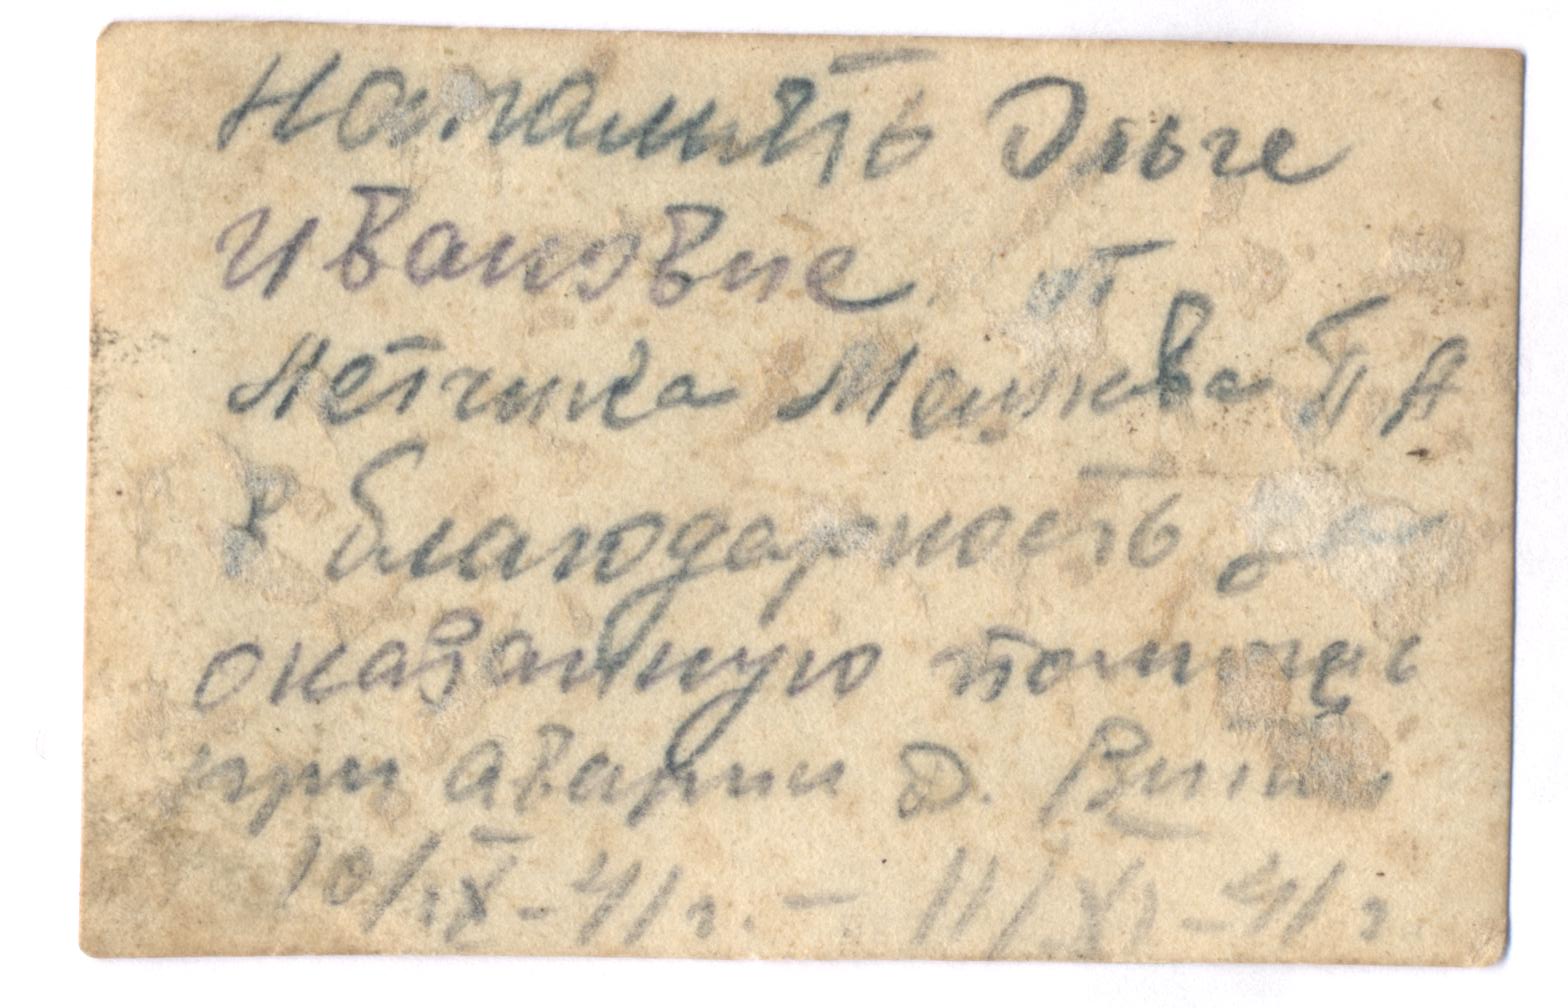 Напамять Ольге
Ивановне. от
летчика П А
В благодарность за
оказанную помощь
при аварии Д.
10/IX-41г. – 11/XI-41г